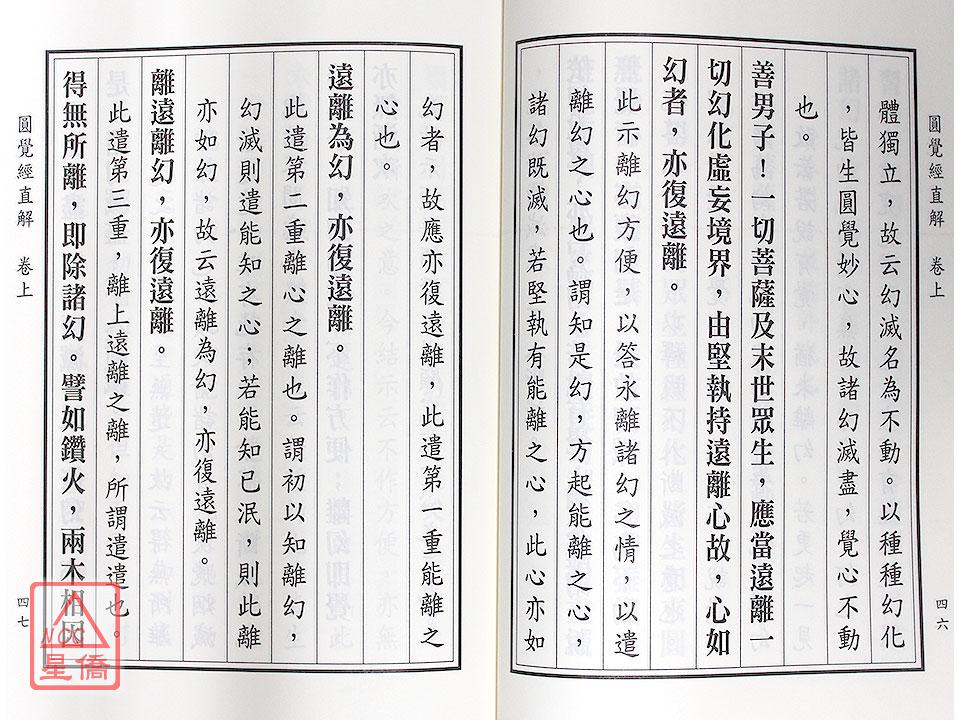 圓覺經直解　卷上
四六
體獨立，故云幻滅名為不動。以種種幻化
，皆生圓覺妙心，故諸幻滅盡，覺心不動
也。
善男子！一切菩薩及末世眾生，應當遠離一
切幻化虛妄境界，由堅執持遠離心故，心如
幻者，亦復遠離。
此示離幻方便以答永離諸幻之情，以遣
離幻之心也。謂知是幻，方起能離之心，
諸幻既滅，若堅執有能離之心，此心亦如
幻者，故應亦復遠離，此遣第一重能離之
心也。
遠離為幻，亦復遠離。
此遣第二重離心之離也。謂初以知離幻，
幻滅則遣能知之心；若能知已泯，則此離
亦如幻，故云遠離為幻，亦復遠離。
離遠離幻，亦復遠離。
此遣第三重，離上遠離之離，所謂遣遣也。
得無所離，即除諸幻。譬如鑽火，兩木相因
圓覺經直解　卷上
四七
NCC
星僑